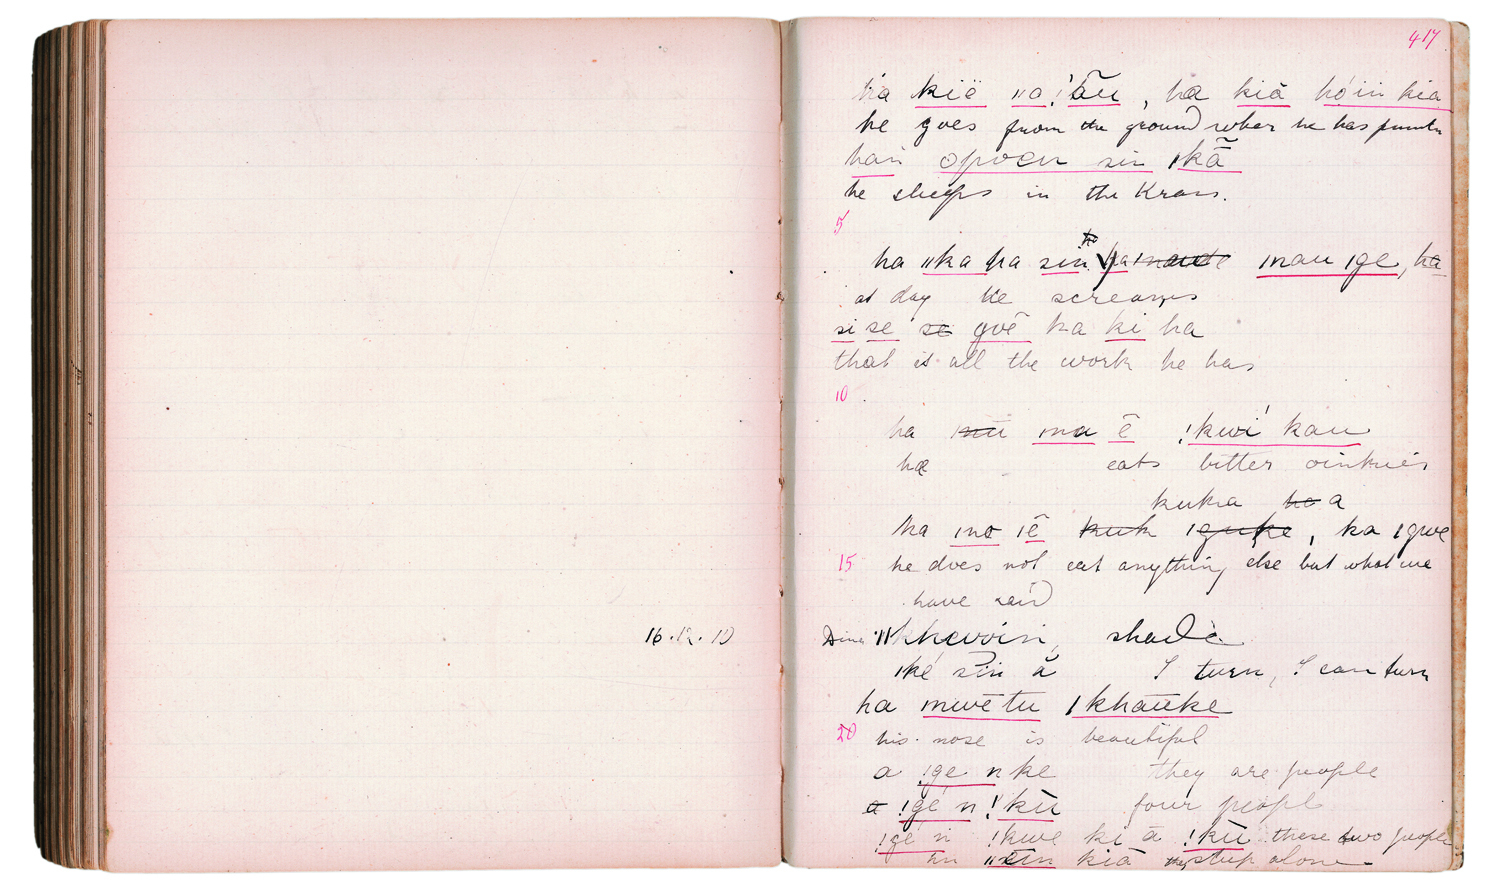 417
ha kië ǁa!ãu, ha kiā hóin kia
he goes from the ground where he has
han opoen sin ǀkã
he sleeps in the Kran.
5
ha ǁka ha sin ha ǀnau ǀge, ha
at day he screams
si se se gvē ha ki ha
that is all the work he has
10
ha ǀnū ma ē !kwi kau
he eats bitter oinkies
kuka ho a
ha ǀno ǀē kuk ǀguke, ka ǀgwe
15 he does not eat anything else but what we
have said
16.12.10
Dina ǁkhwöin, shade
ǀké sin ā I turn, I can turn
ha mwētu ǀkhaūke
20 his nose is beautiful
a !ge n ke they are people
a !gé n !kū four peopl
!gé n !kwe ki ā !kū these two people
hn ǁēin kiā they sleep alone